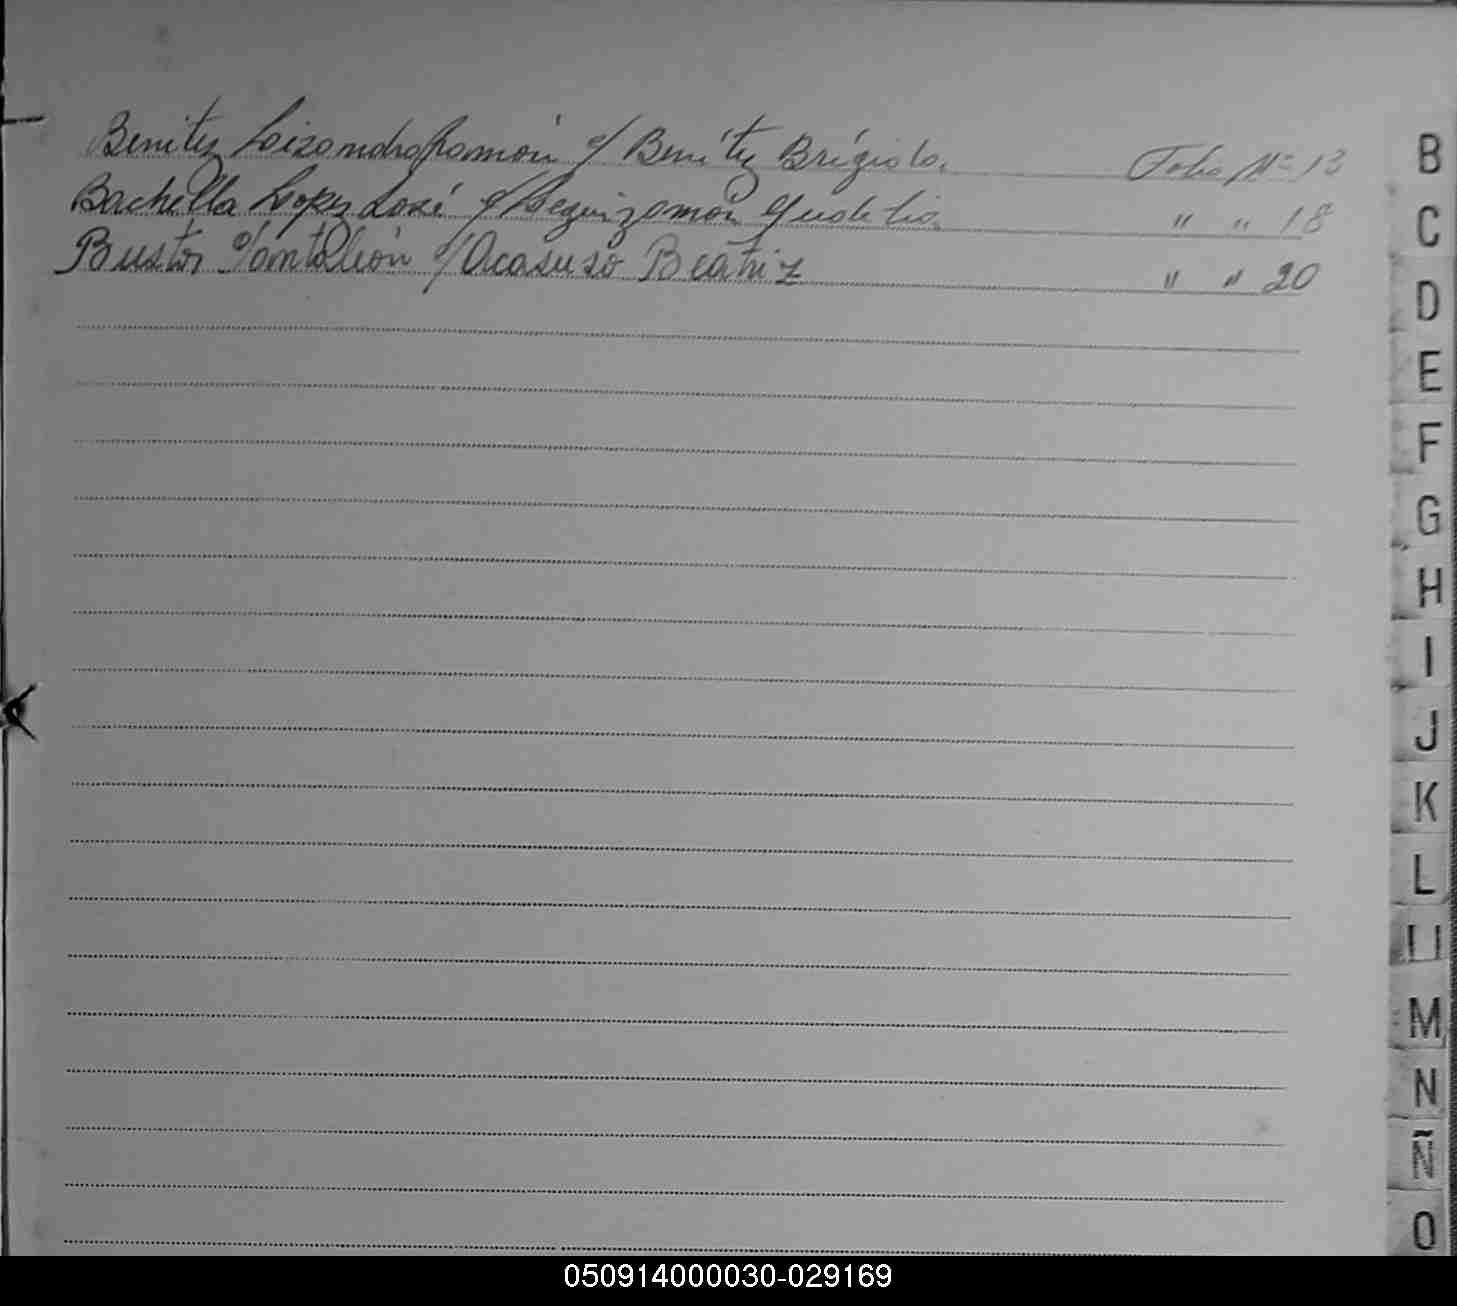 Benitez Leizandro Ramón c/ Benítez Brígida. Folio Nº 13
Bachella Lopez José c/ Leguizamón " " 18
Bustos Pantaleón c/ Acasuso Beatriz " " 20
B
C
D
E
F
G
H
I
J
K
L
Ll
M
N
Ñ
O
050914000030-029169